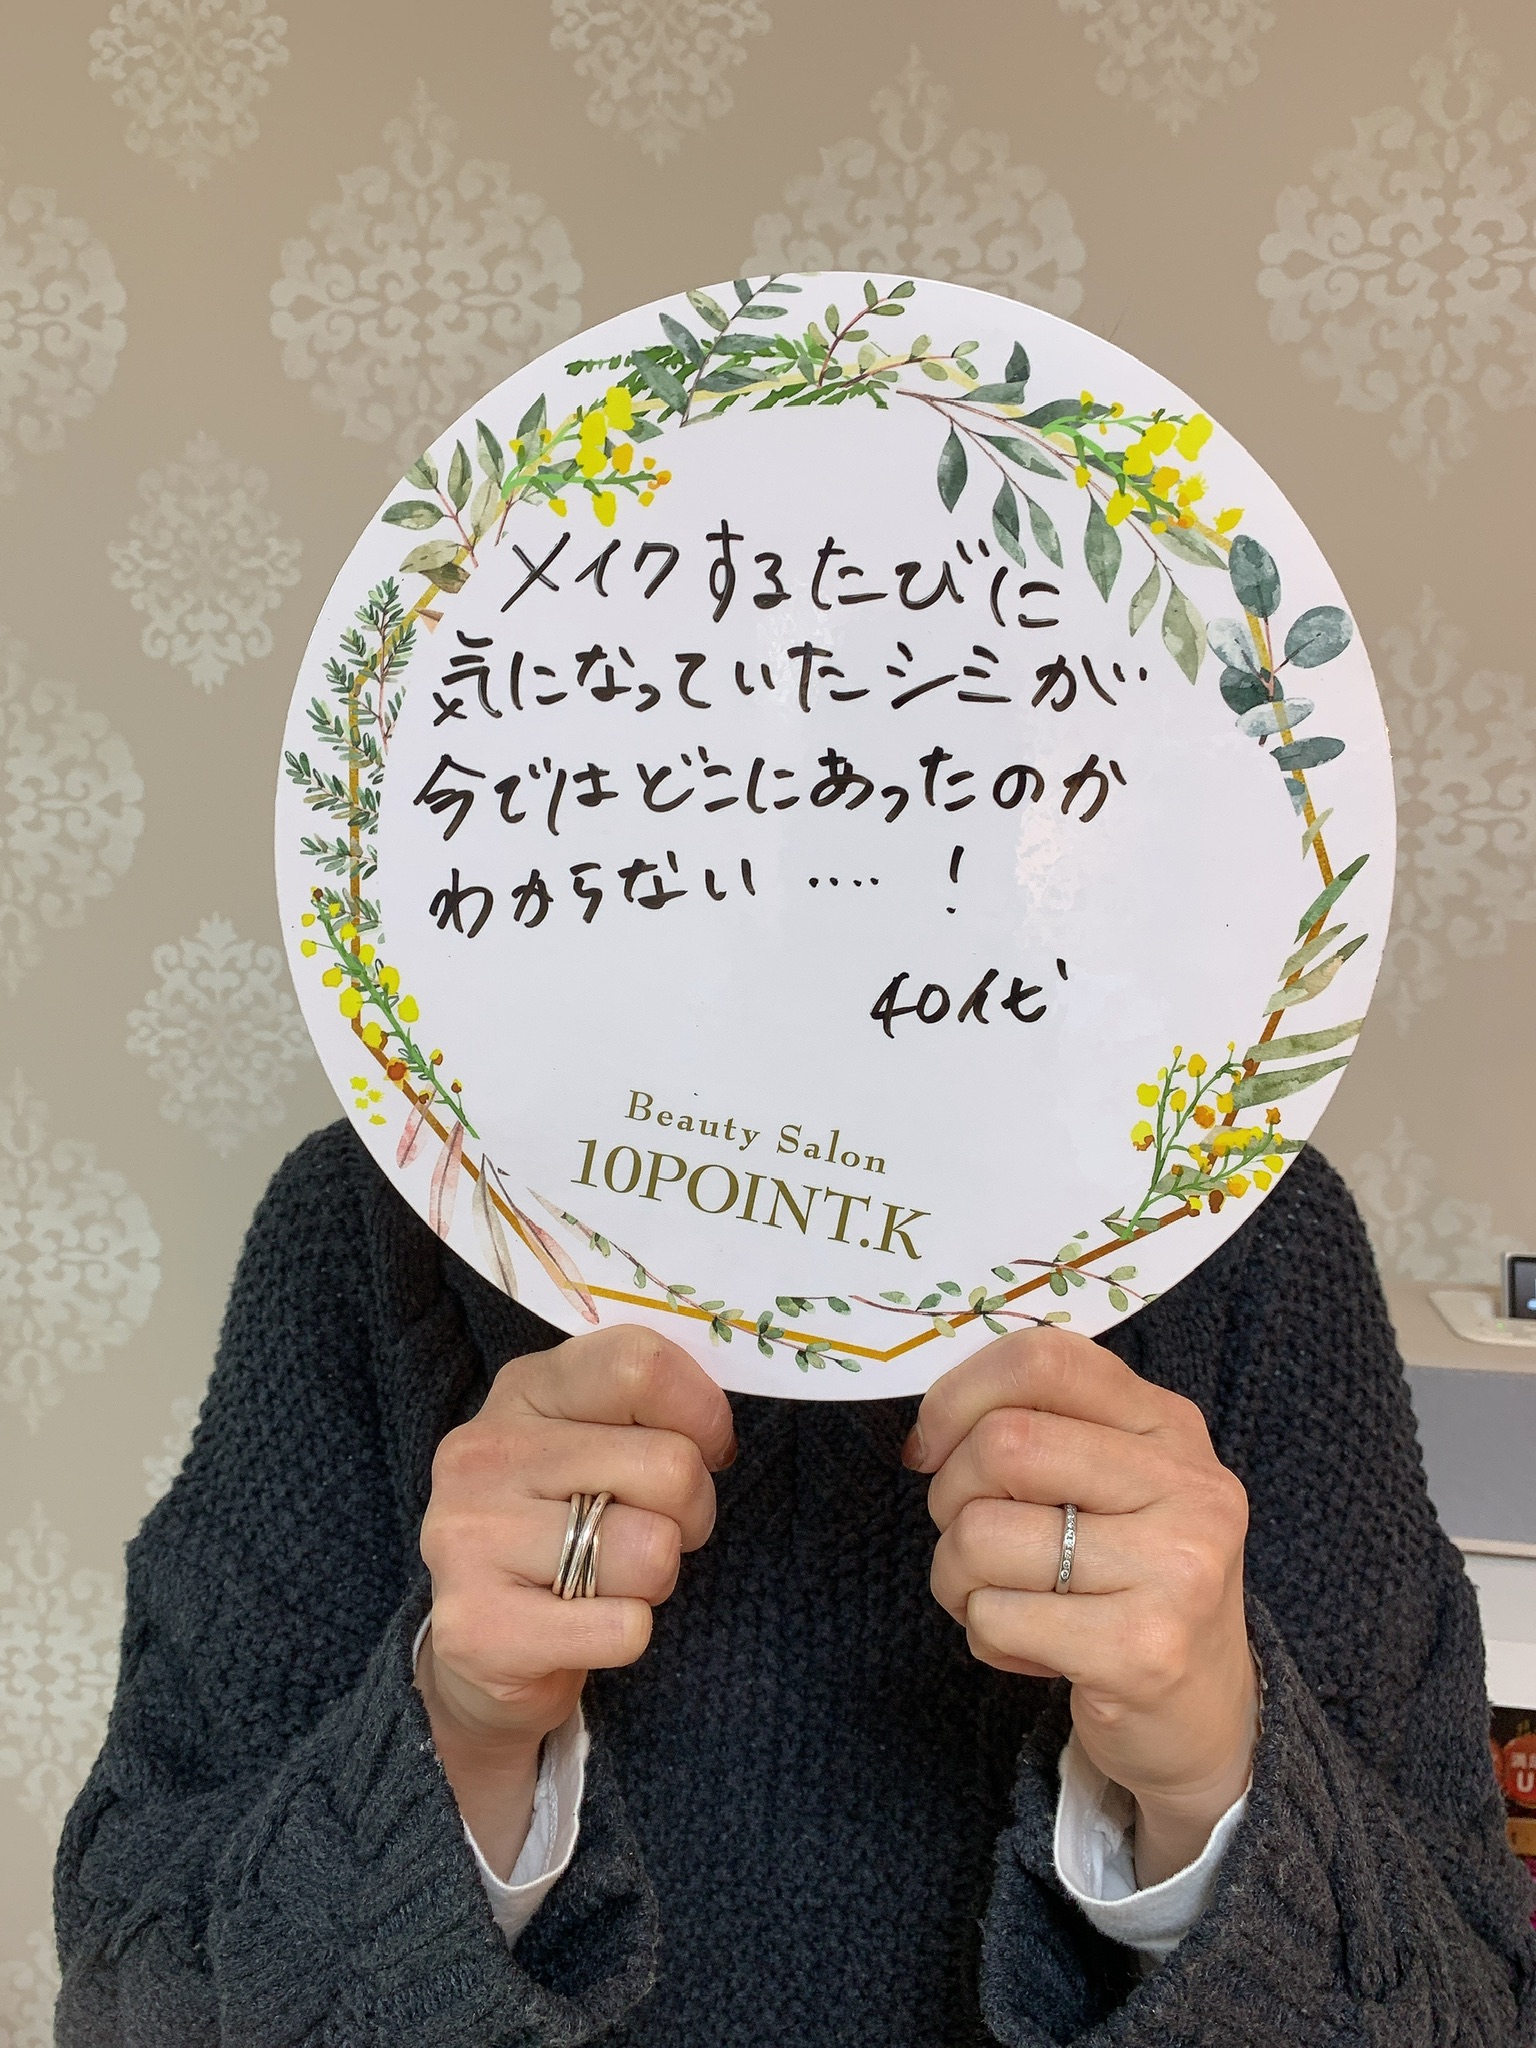 メイクするたびに
気になっていたシミが
今ではどこにあったのか
わからない ‥‥ !
40代
Beauty Salon
10POINT.K
U